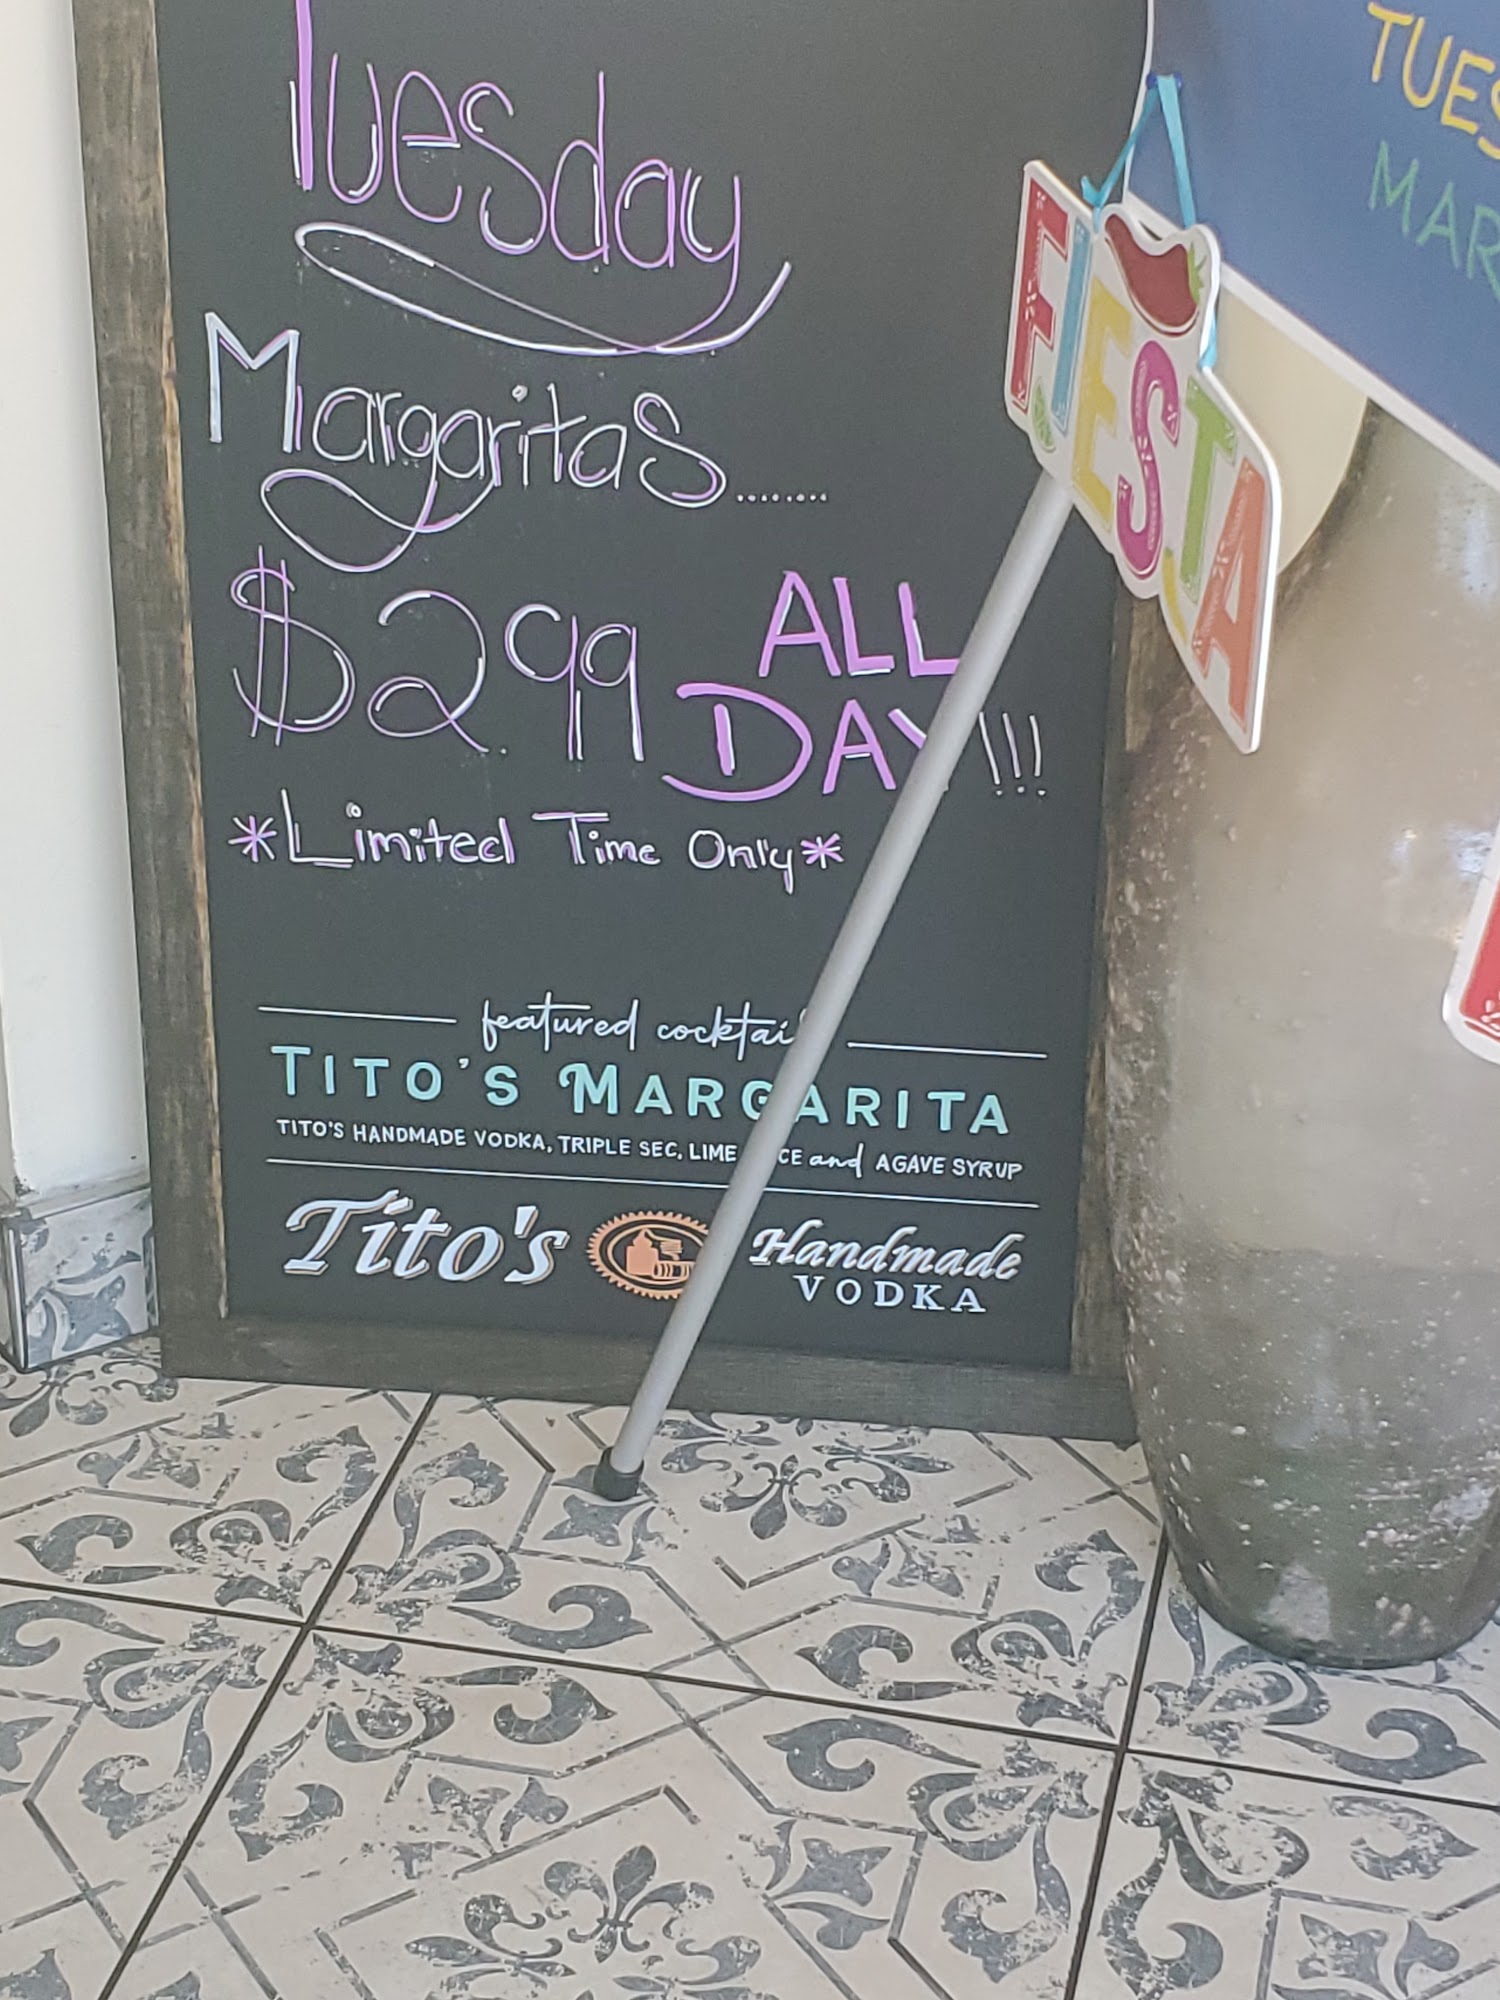 Tuesday
Margaritas........
$2.99 ALL
DAY!!!
*Limited Time Only*
featured cocktail
TITO'S MARGARITA
TITO'S HANDMADE VODKA, TRIPLE SEC, LIME and AGAVE SYRUP
Tito's Handmade
VODKA
FIESTA